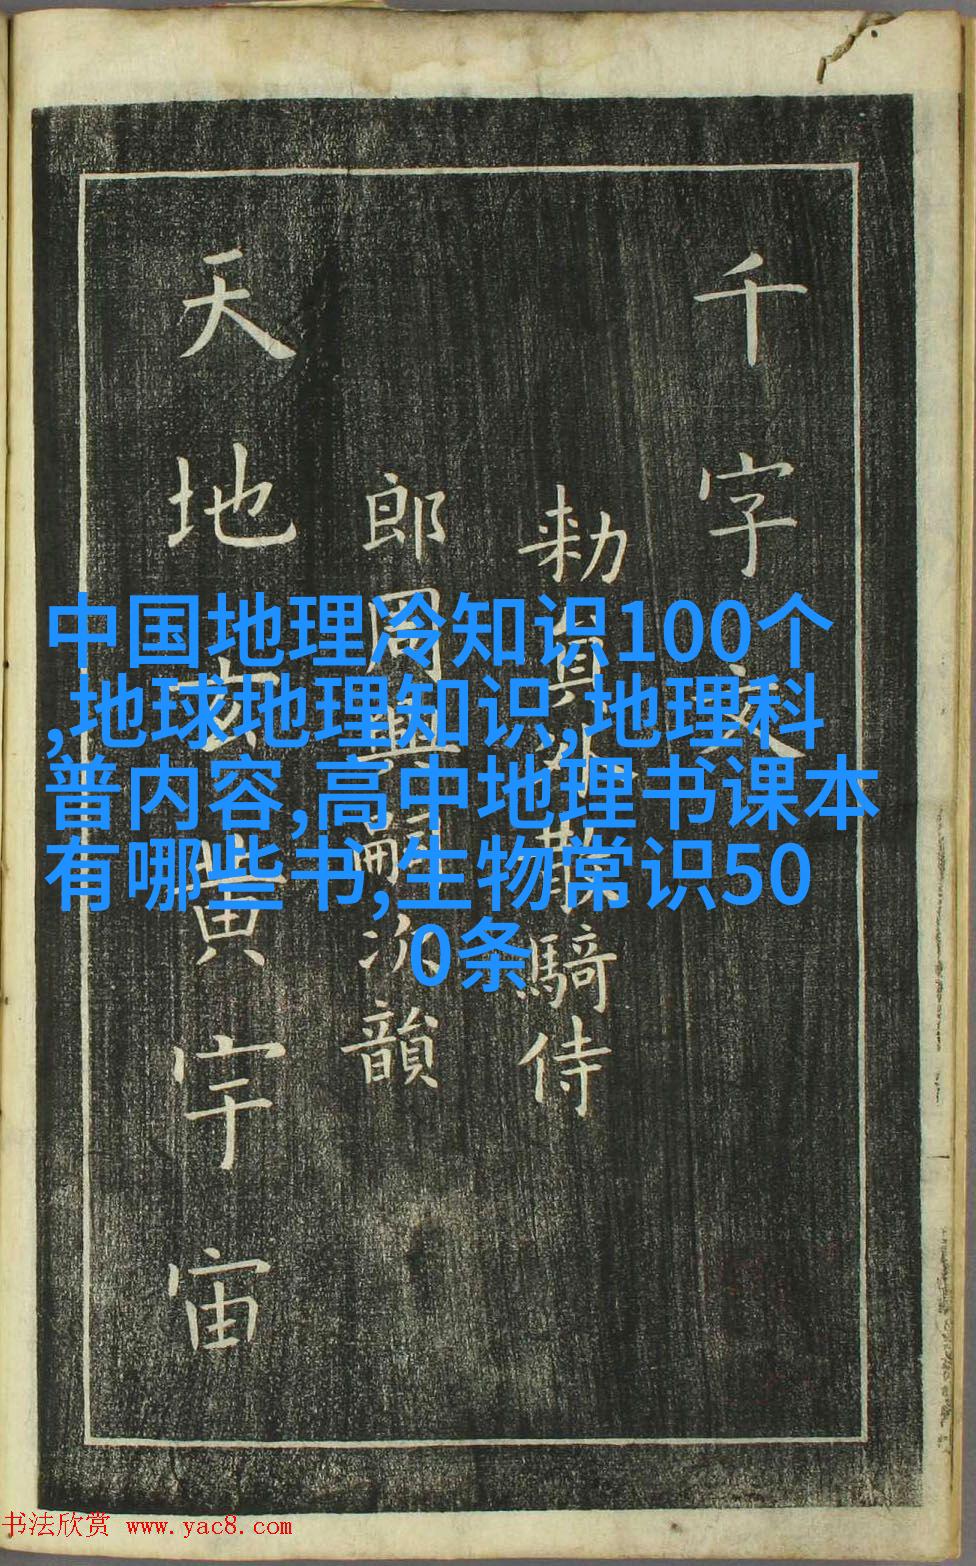 千字文
勑員外散騎侍
郎周興嗣次韻
天地玄黃宇宙
中国地理冷知识100个
,地球地理知识,地理科
普内容,高中地理书课本
有哪些书,生物常识50
0条
书法欣赏 www.yac8.com